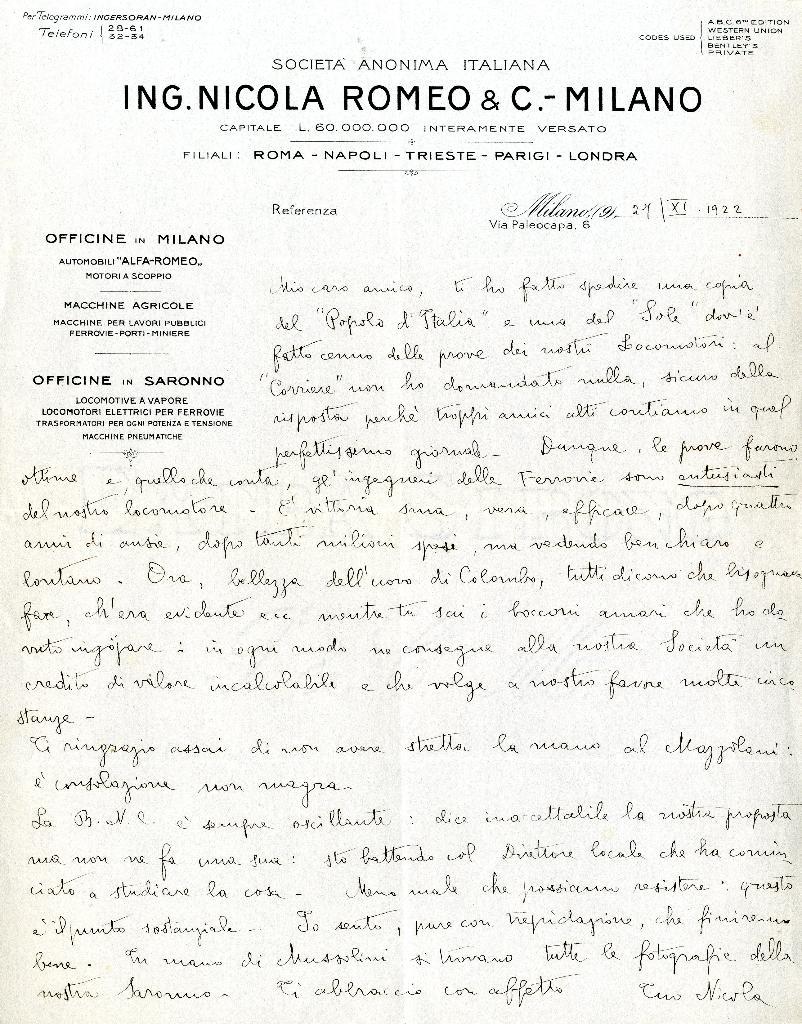 Per Telegrammi: INGERSORAN-MILANO
Telefoni 28-61
32-34
CODES USED
A.B.C. 6TH EDITION
WESTERN UNION
LIEBER'S
BENTLEY'S
PRIVATE
SOCIETÀ ANONIMA ITALIANA
ING. NICOLA ROMEO & C.- MILANO
CAPITALE L. 60.000.000 INTERAMENTE VERSATO
FILIALI: ROMA - NAPOLI - TRIESTE - PARIGI - LONDRA
Referenza
Milano, (9) XI 1922
Via Paleocapa, 6
OFFICINE IN MILANO
AUTOMOBILI "ALFA-ROMEO„
MOTORI A SCOPPIO
MACCHINE AGRICOLE
MACCHINE PER LAVORI PUBBLICI
FERROVIE-PORTI-MINIERE
OFFICINE IN SARONNO
LOCOMOTIVE A VAPORE
LOCOMOTORI ELETTRICI PER FERROVIE
TRASFORMATORI PER OGNI POTENZA E TENSIONE
MACCHINE PNEUMATICHE
Mio caro amico, ti ho fatto spedire una copia
del "Popolo d'Italia" e una del "Sole" dov'è
fatto cenno delle prove dei nostri Locomotori: al
"Corriere" non ho domandato nulla, sicuro della
risposta perchè troppi amici alti contiamo in quel
perfettissimo giornale - Dunque, le prove furono
ottime e, quello che conta, gl'ingegneri delle Ferrovie sono entusiasti
del nostro locomotore - E' vittoria sana, vera, efficace, dopo quattro
anni di ansie, dopo tanti milioni spesi, ma vedendo ben chiaro e
lontano. Ora, bellezza dell'uovo di Colombo, tutti dicono che bisognava
fare, ch'era evidente ecc mentre tu sai i bocconi amari che ho do
vuto ingojare: in ogni modo ne consegue alla nostra Società un
credito di valore incalcolabile e che volge a nostro favore molte circo
stanze -
Ti ringrazio assai di non avere stretta la mano al Mazzolani:
è consolazione non magra -
La B.N.C. è sempre oscillante: dice inaccettabile la nostra proposta
ma non ne fa una sua: sto battendo col Direttore locale che ha comin
ciato a studiare la cosa - Meno male che possiamo resistere: questo
è il punto sostanziale - Io sento, pure con trepidazione, che finiremo
bene. In mano di Mussolini si trovano tutte le fotografie della
nostra Saronno - Ti abbraccio con affetto Tuo Nicola